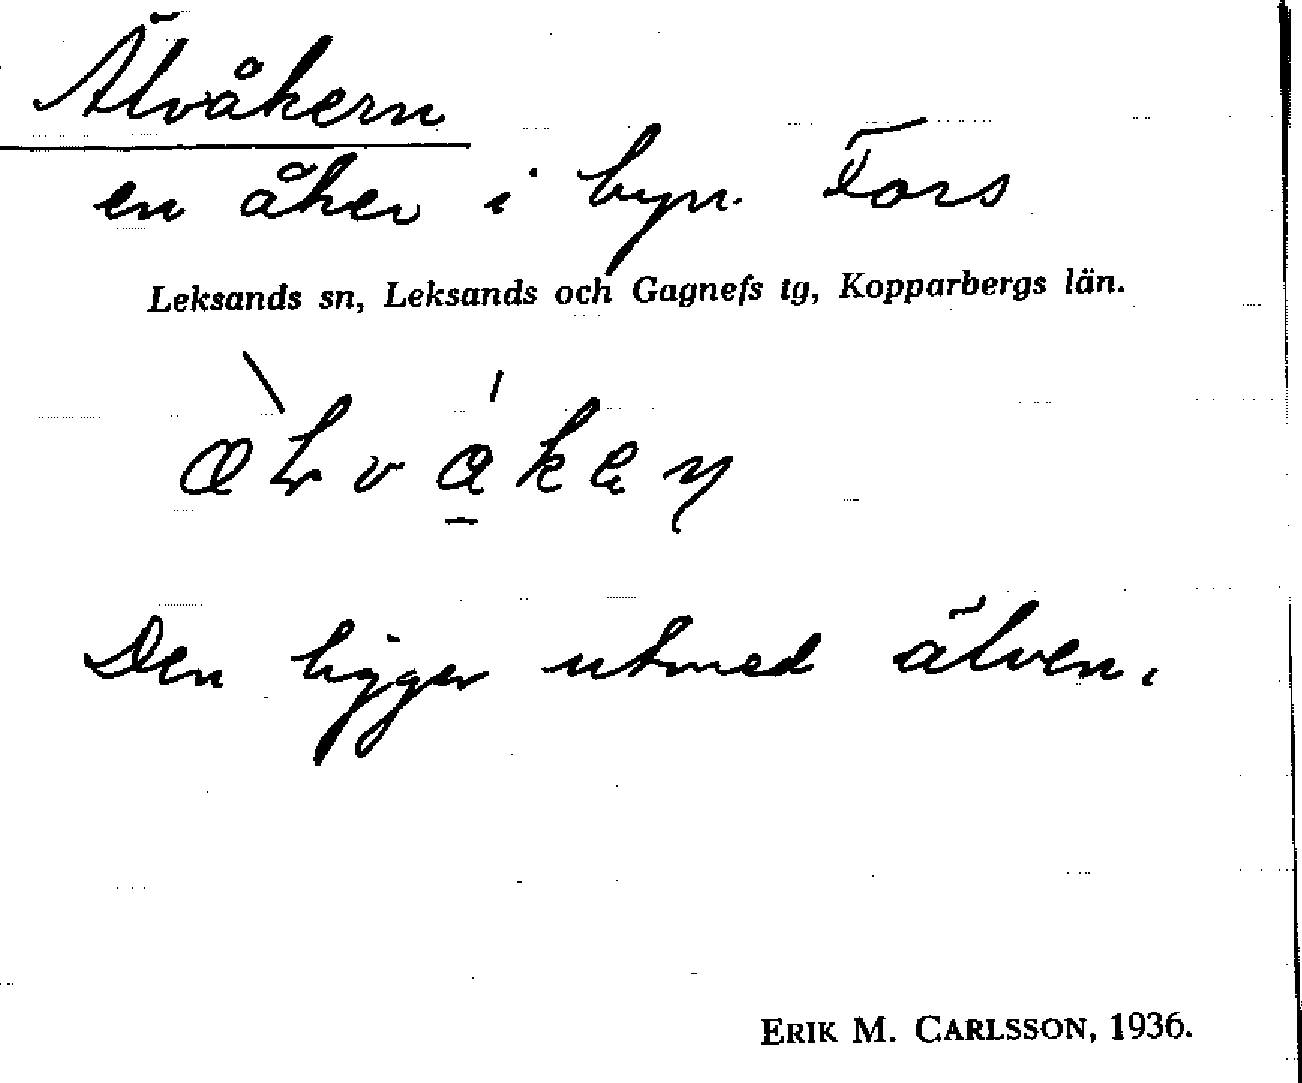 Älvåkern
en åker i byn Fors
Leksands sn, Leksands och Gagnefs tg, Kopparbergs län.
Den ligger utmed älven.
ERIK M. CARLSSON, 1936.